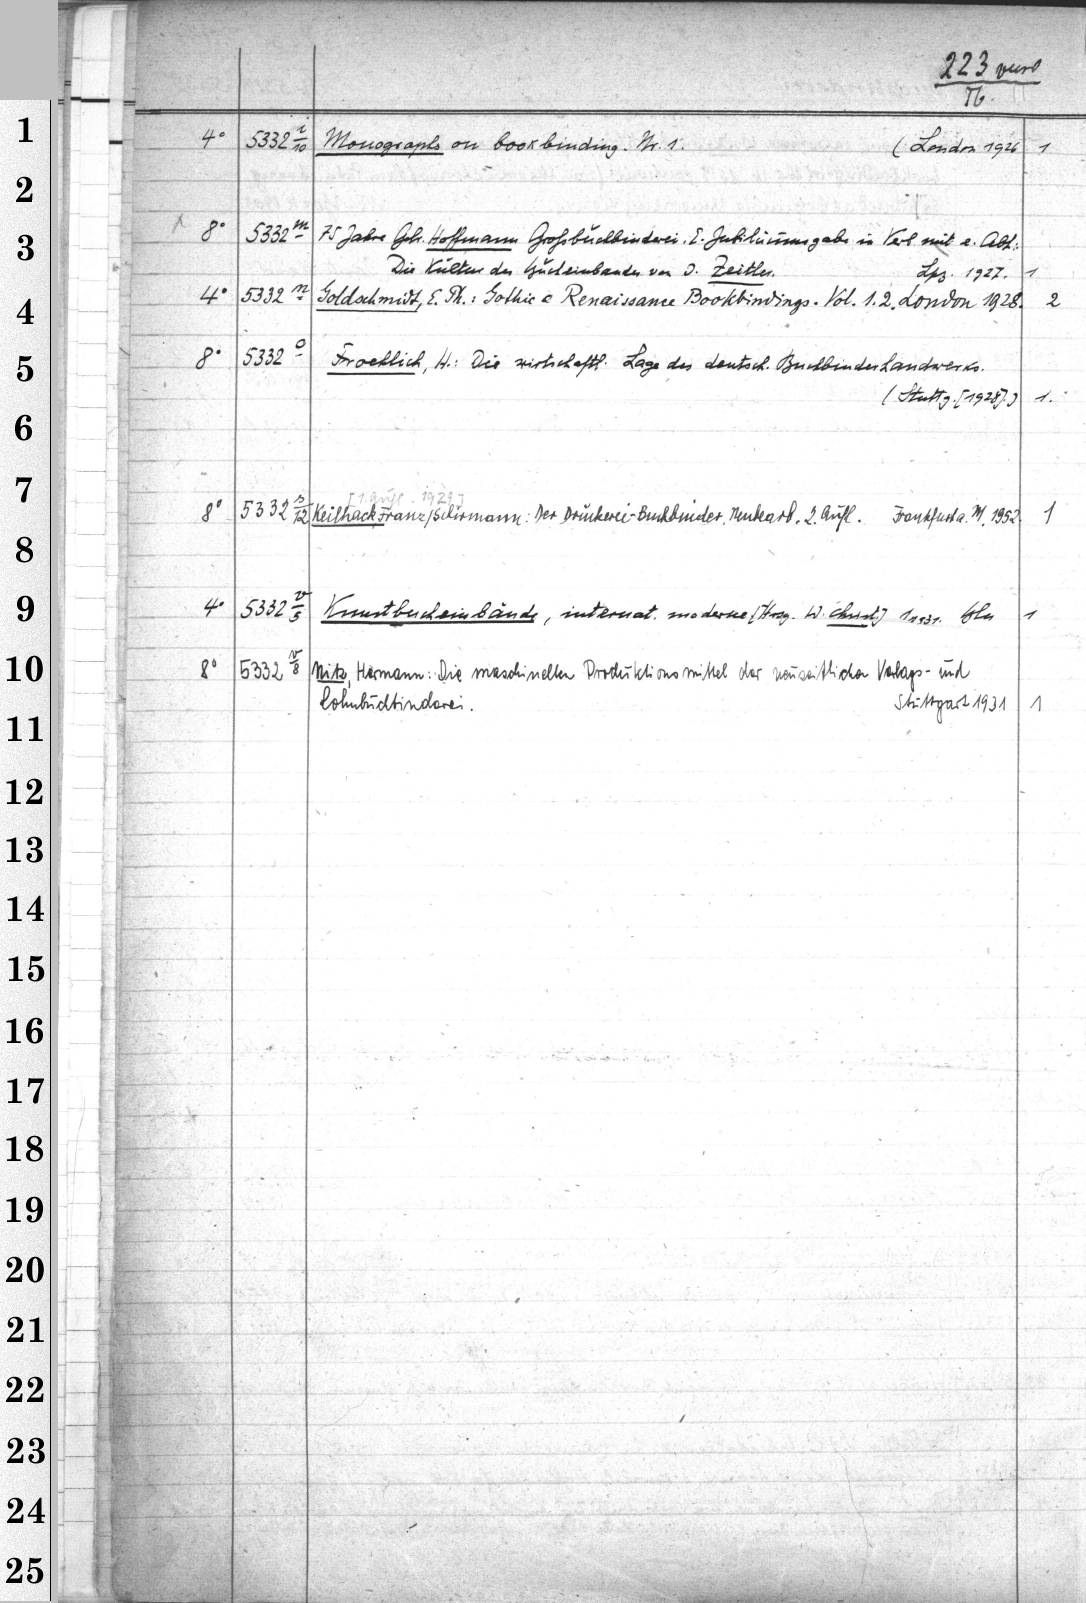 223
1
4° 5332 i/10 Monographs on bookbinding. Nr. 1. (London 1926 1
2
8° 5332 m 75 Jahre Gebr. Hoffmann Großbuchbinderei. E. Jubiläumsgabe in Verb. mit e. Abh.:
3
Die Kultur des Bucheinbandes von J. Zeitler. Lpz. 1927. 1
4° 5332 n Goldschmidt, E. Ph.: Gothic & Renaissance Bookbindings. Vol. 1.2. London 1928. 2
4
8° 5332 o Froehlich, H.: Die wirtschaftl. Lage des deutsch. Buchbinderhandwerks.
5
(Stuttg. [1928].) 1.
6
7
[1. Aufl. 1929]
8° 5332 s/12 Keilhack, Franz/Schirmann: Der Druckerei-Buchbinder. Neubearb. 2. Aufl. Frankfurt a. M. 1952. 1
8
9
4° 5332 v/5 Kunstbucheinbände, internat. moderne [Hrsg. W. Christ] 1 1931. Bln 1
10
8° 5332 v/8 Nitz, Hermann: Die maschinellen Produktionsmittel der neuzeitlichen Verlags- und
Lohnbuchbinderei. Stuttgart 1931 1
11
12
13
14
15
16
17
18
19
20
21
22
23
24
25